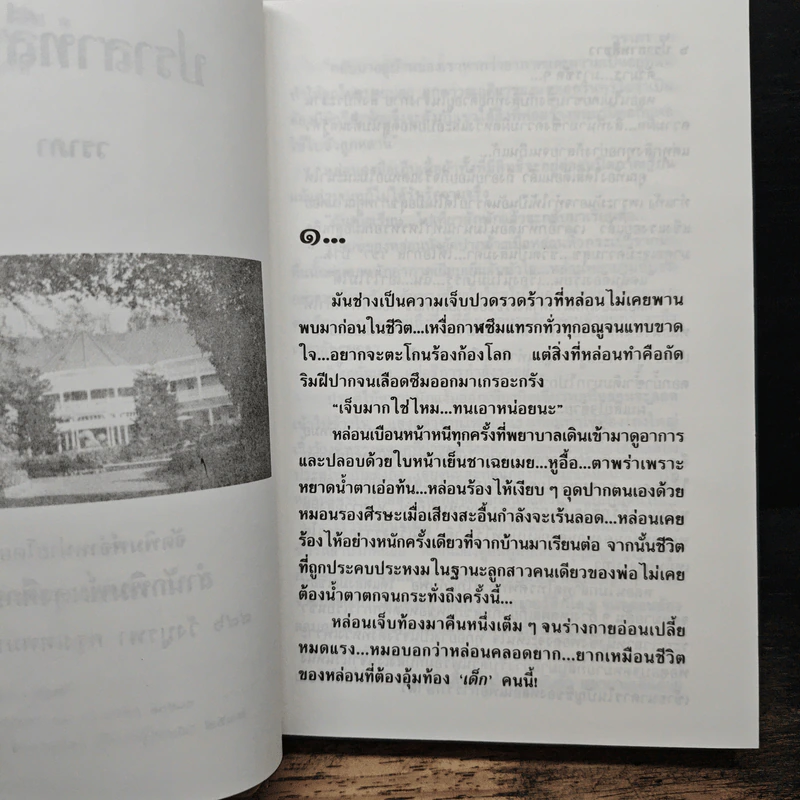 ๑...
มันช่างเป็นความเจ็บปวดรวดร้าวที่หล่อนไม่เคยพาน
พบมาก่อนในชีวิต...เหงื่อกาฬซึมแทรกทั่วทุกอณูจนแทบขาด
ใจ...อยากจะตะโกนร้องก้องโลก แต่สิ่งที่หล่อนทำคือกัด
ริมฝีปากจนเลือดซึมออกมาเกรอะกรัง
“เจ็บมากใช่ไหม...ทนเอาหน่อยนะ”
หล่อนเบือนหน้าหนีทุกครั้งที่พยาบาลเดินเข้ามาดูอาการ
และปลอบด้วยใบหน้าเย็นชาเฉยเมย...หูอื้อ...ตาพร่าเพราะ
หยาดน้ำตาเอ่อท้น...หล่อนร้องไห้เงียบ ๆ อุดปากตนเองด้วย
หมอนรองศีรษะเมื่อเสียงสะอื้นกำลังจะเร้นลอด...หล่อนเคย
ร้องไห้อย่างหนักครั้งเดียวที่จากบ้านมาเรียนต่อ จากนั้นชีวิต
ที่ถูกประคบประหงมในฐานะลูกสาวคนเดียวของพ่อไม่เคย
ต้องน้ำตาตกจนกระทั่งถึงครั้งนี้...
หล่อนเจ็บท้องมาคืนหนึ่งเต็ม ๆ จนร่างกายอ่อนเปลี้ย
หมดแรง...หมอบอกว่าหล่อนคลอดยาก...ยากเหมือนชีวิต
ของหล่อนที่ต้องอุ้มท้อง ‘เด็ก’ คนนี้!